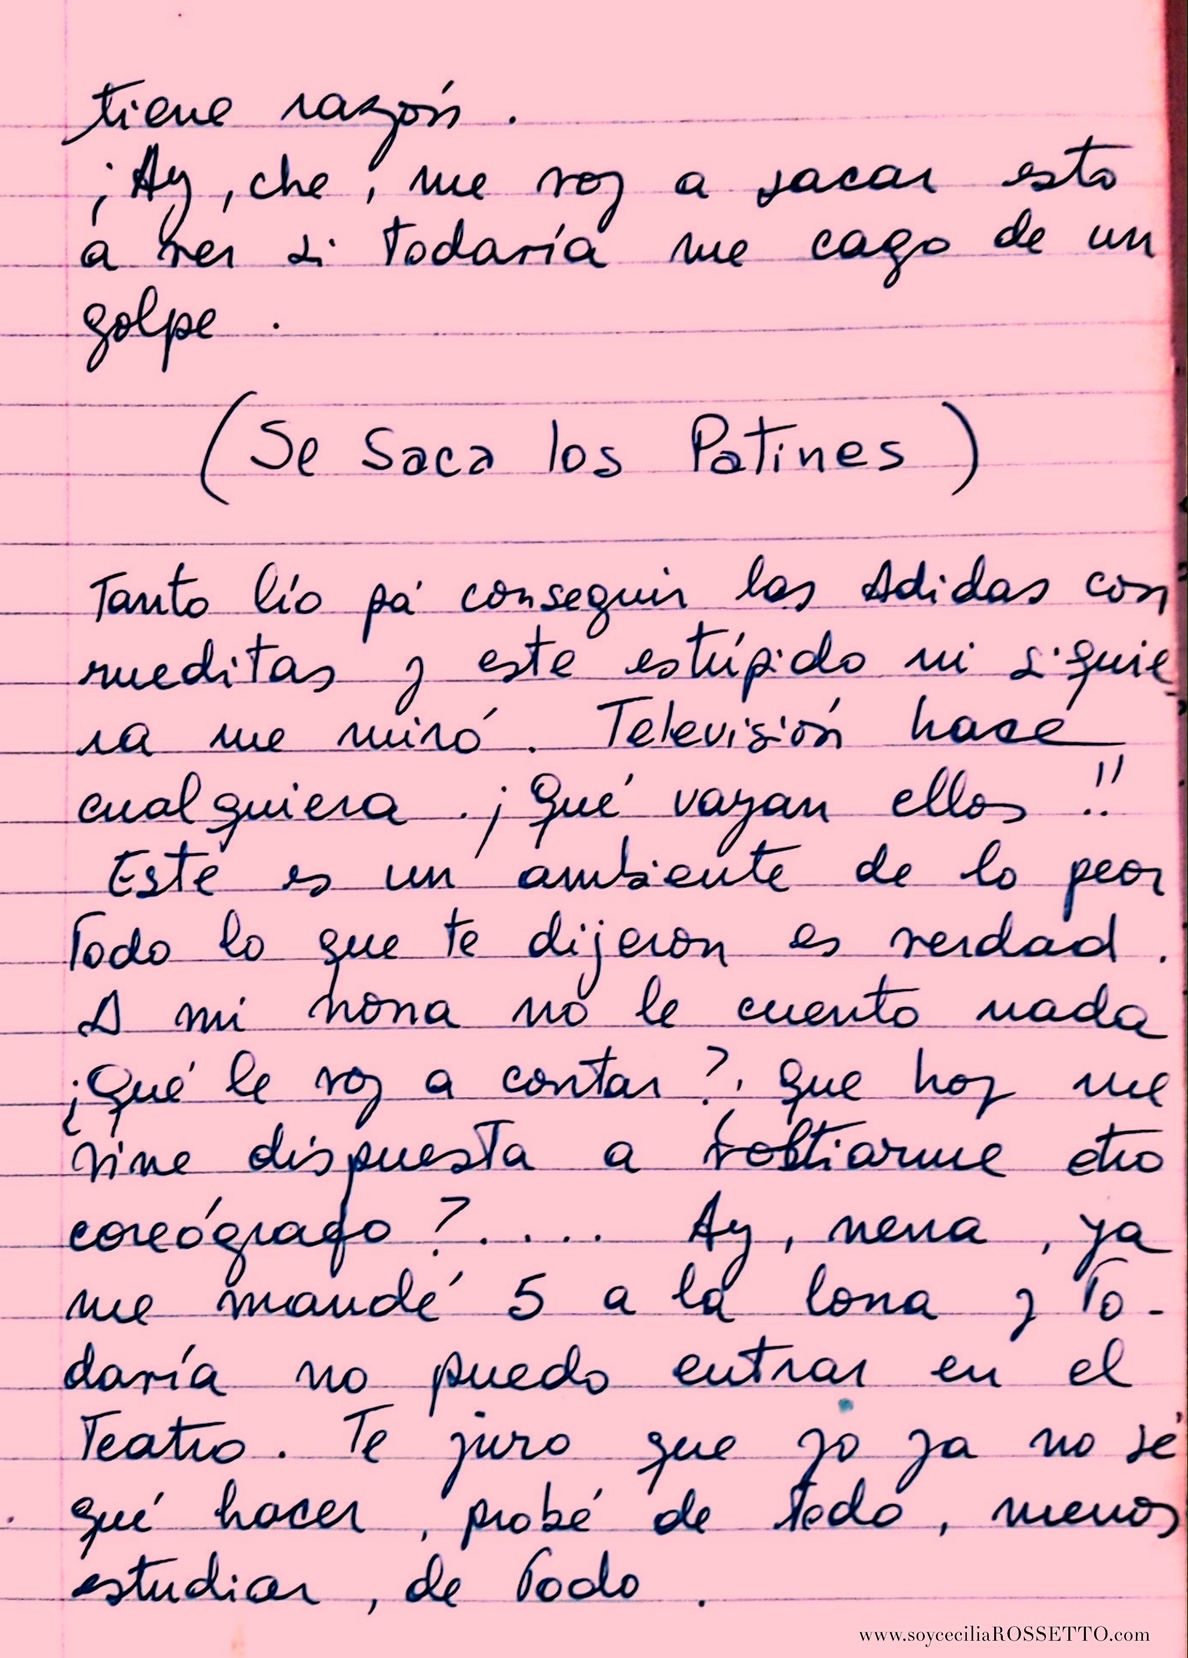 tiene razón.
¡Ay, che, me voy a sacar esto
a ver si todavía me cago de un
golpe.
(Se Saca los Patines)
Tanto lío pa' conseguir las Adidas con
rueditas y este estúpido ni siquie
ra me miró. Televisión hace
cualquiera. ¡Qué vayan ellos!!
Este es un ambiente de lo peor
Todo lo que te dijeron es verdad.
A mi nona no le cuento nada
¿Qué le voy a contar?, que hoy me
vine dispuesta a voltiarme otro
coreógrafo?.... Ay, nena, ya
me mandé 5 a la lona y to-
davía no puedo entrar en el
Teatro. Te juro que yo ya no sé
qué hacer, probé de todo, menos
estudiar, de todo.
www.soyceciliaROSSETTO.com